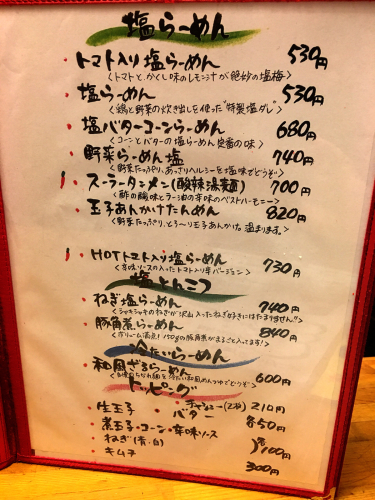 塩らーめん
トマト入り塩らーめん 530円
<トマトと、かくし味のレモン汁が絶妙の塩梅>
塩らーめん 530円
<鶏と野菜の炊き出しを使った"特製塩ダレ">
塩バターコーンらーめん 680円
<コーンとバターの塩らーめん定番の味>
野菜らーめん塩 740円
<野菜たっぷり、あっさりヘルシーを塩味でどうぞ>
スーラータンメン(酸辣湯麺) 700円
<酢の酸味とラー油の辛味のベストハーモニー>
玉子あんかけたんめん 820円
<野菜たっぷり、とろ〜り玉子あんかけ。温まります。>
HOTトマト入り塩らーめん 730円
<辛味ソースの入ったトマト入り辛バージョン>
塩とんこつ
ねぎ塩らーめん 740円
<シャキシャキのねぎが沢山入ったねぎ好きにはたまりません!!>
豚角煮らーめん 840円
<ボリューム満点!150gの豚角煮がまるごと入ってます!>
冷たいらーめん
和風ざるらーめん 600円
冷たい和風めんつゆでどうぞ>
トッピング
生玉子・チャーシュー(2枚) 210円
バター 各50円
煮玉子・コーン・辛味ソース
ねぎ(青・白) 各100円
キムチ 300円